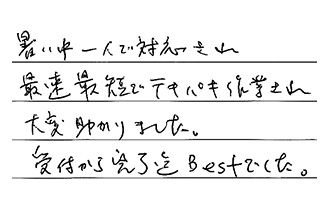 暑い中一人で対応され
最速最短でテキパキ作業され
大変助かりました。
受付から完了迄Bestでした。